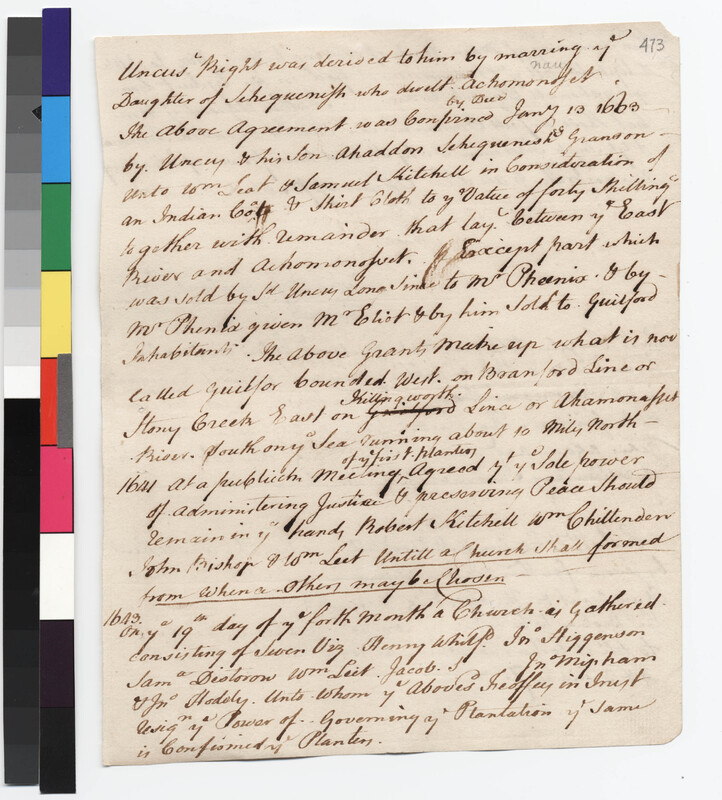 473
Uncus' Right was derived to him by marring ye
Daughter of Sehequenish who dwelt Achomonosset
nau
by Deed
The Above Agreement was Confirmed Jany 13 1663
by Uncus & his Son Ahaddon Sehequenesks Granson
Unto Wm Leat & Samuel Kitchell in Consideration of
an Indian Coat & Shirt Cloth to ye Value of forty Shillings
together with remainder that lays between ye East
River and Achomonosset. Except part which
was sold by Sd Uncus Long Since to Mr Pheenix & by
Mr Phenix given Mr Eliot & by him Sold to Guilford
Inhabitants. The Above Grants Make up what is now
Called Guilfor bounded West on Branford Line or
Stony Creek East on Killingworth Line or Ahamonasset
River South on ye Sea running about 10 Mils North
of ye first Planters
1641 At a publick Meeting Agreed yt ye Sole power
of Administering Justice & preserving Peace Should
remain in ye hands Robert Kitchell Wm Chittenden
John Bishop & Wm Leet Untill a Church Shall formed
from whence others may be Chosen
1643. On ye 19th day of ye forth Month a Church is Gathered
Consisting of Seven Viz Henry Whitfd Jno Higgenson
Sama Desborow Wm Leit Jacob S Jno Mipham
& Jno Hoddly Unto whom ye Aboves Feoffees in Trust
resign ye Power of Governing ye Plantation ye Same
is Confirmed ye Planters.